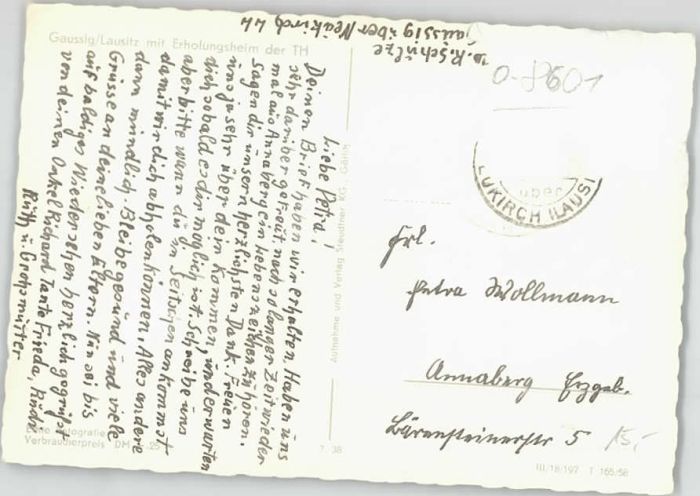 Gaussig/Lausitz mit Erholungsheim der TH
R. Schulze
Gaussig über Neukirch
Liebe Petra!
Deinen Brief haben wir erhalten. Haben uns
sehr darüber gefreut, nach so langer Zeit wieder
mal aus Annaberg ein Lebenszeichen zu hören.
Sagen dir unsern herzlichsten Dank. Freuen
uns ja sehr über dein Kommen, und erwarten
dich sobald es dir möglich ist. Schreibe uns
aber bitte wann du in Seitschen ankommst
damit wir dich abholen können. Alles andere
dann mündlich. Bleibe gesund und viele
Grüsse an deine lieben Eltern. Nun sei bis
auf baldiges Wiedersehen herzlich gegrüßt
von deinen Onkel Richard Tante Frieda,
Ruth u. Großmutter
Verbraucherpreis DM
Aufnahme und Verlag Steudtner KG., Görlitz
7. 38
O-8601
über
EUKIRCH (LAUSI
Frl.
Petra Wollmann
Annaberg Erzgeb.
Bärensteinerstr 5
15,-
III/18/197 T 165/58